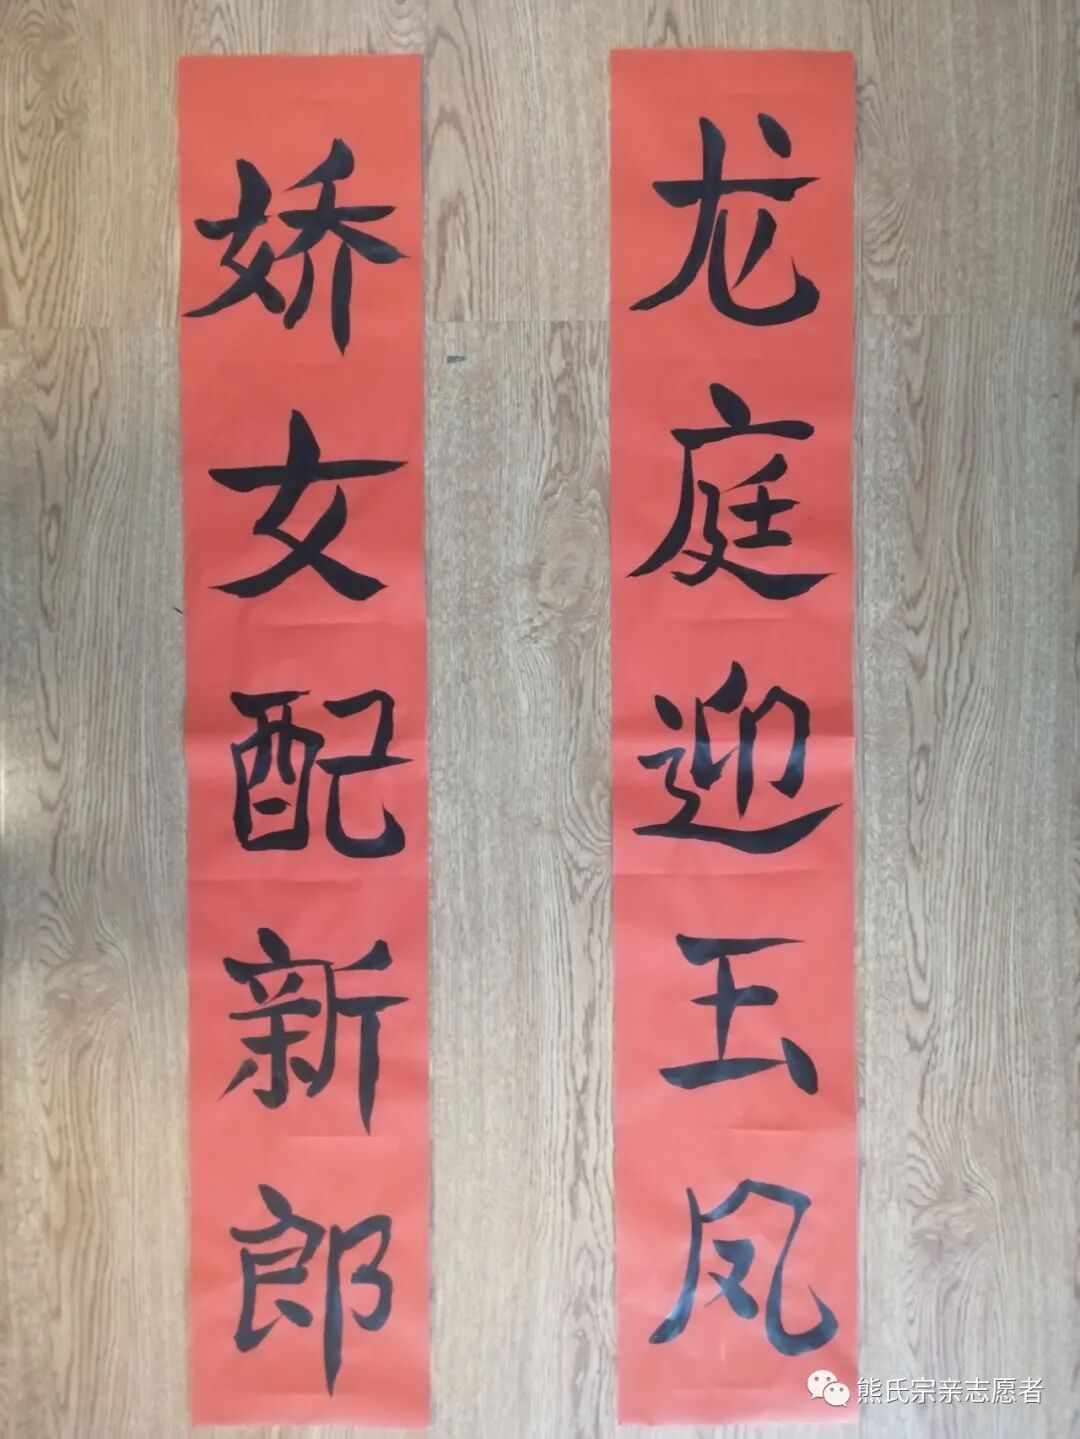 龙庭迎玉凤
娇女配新郎
熊氏宗亲志愿者